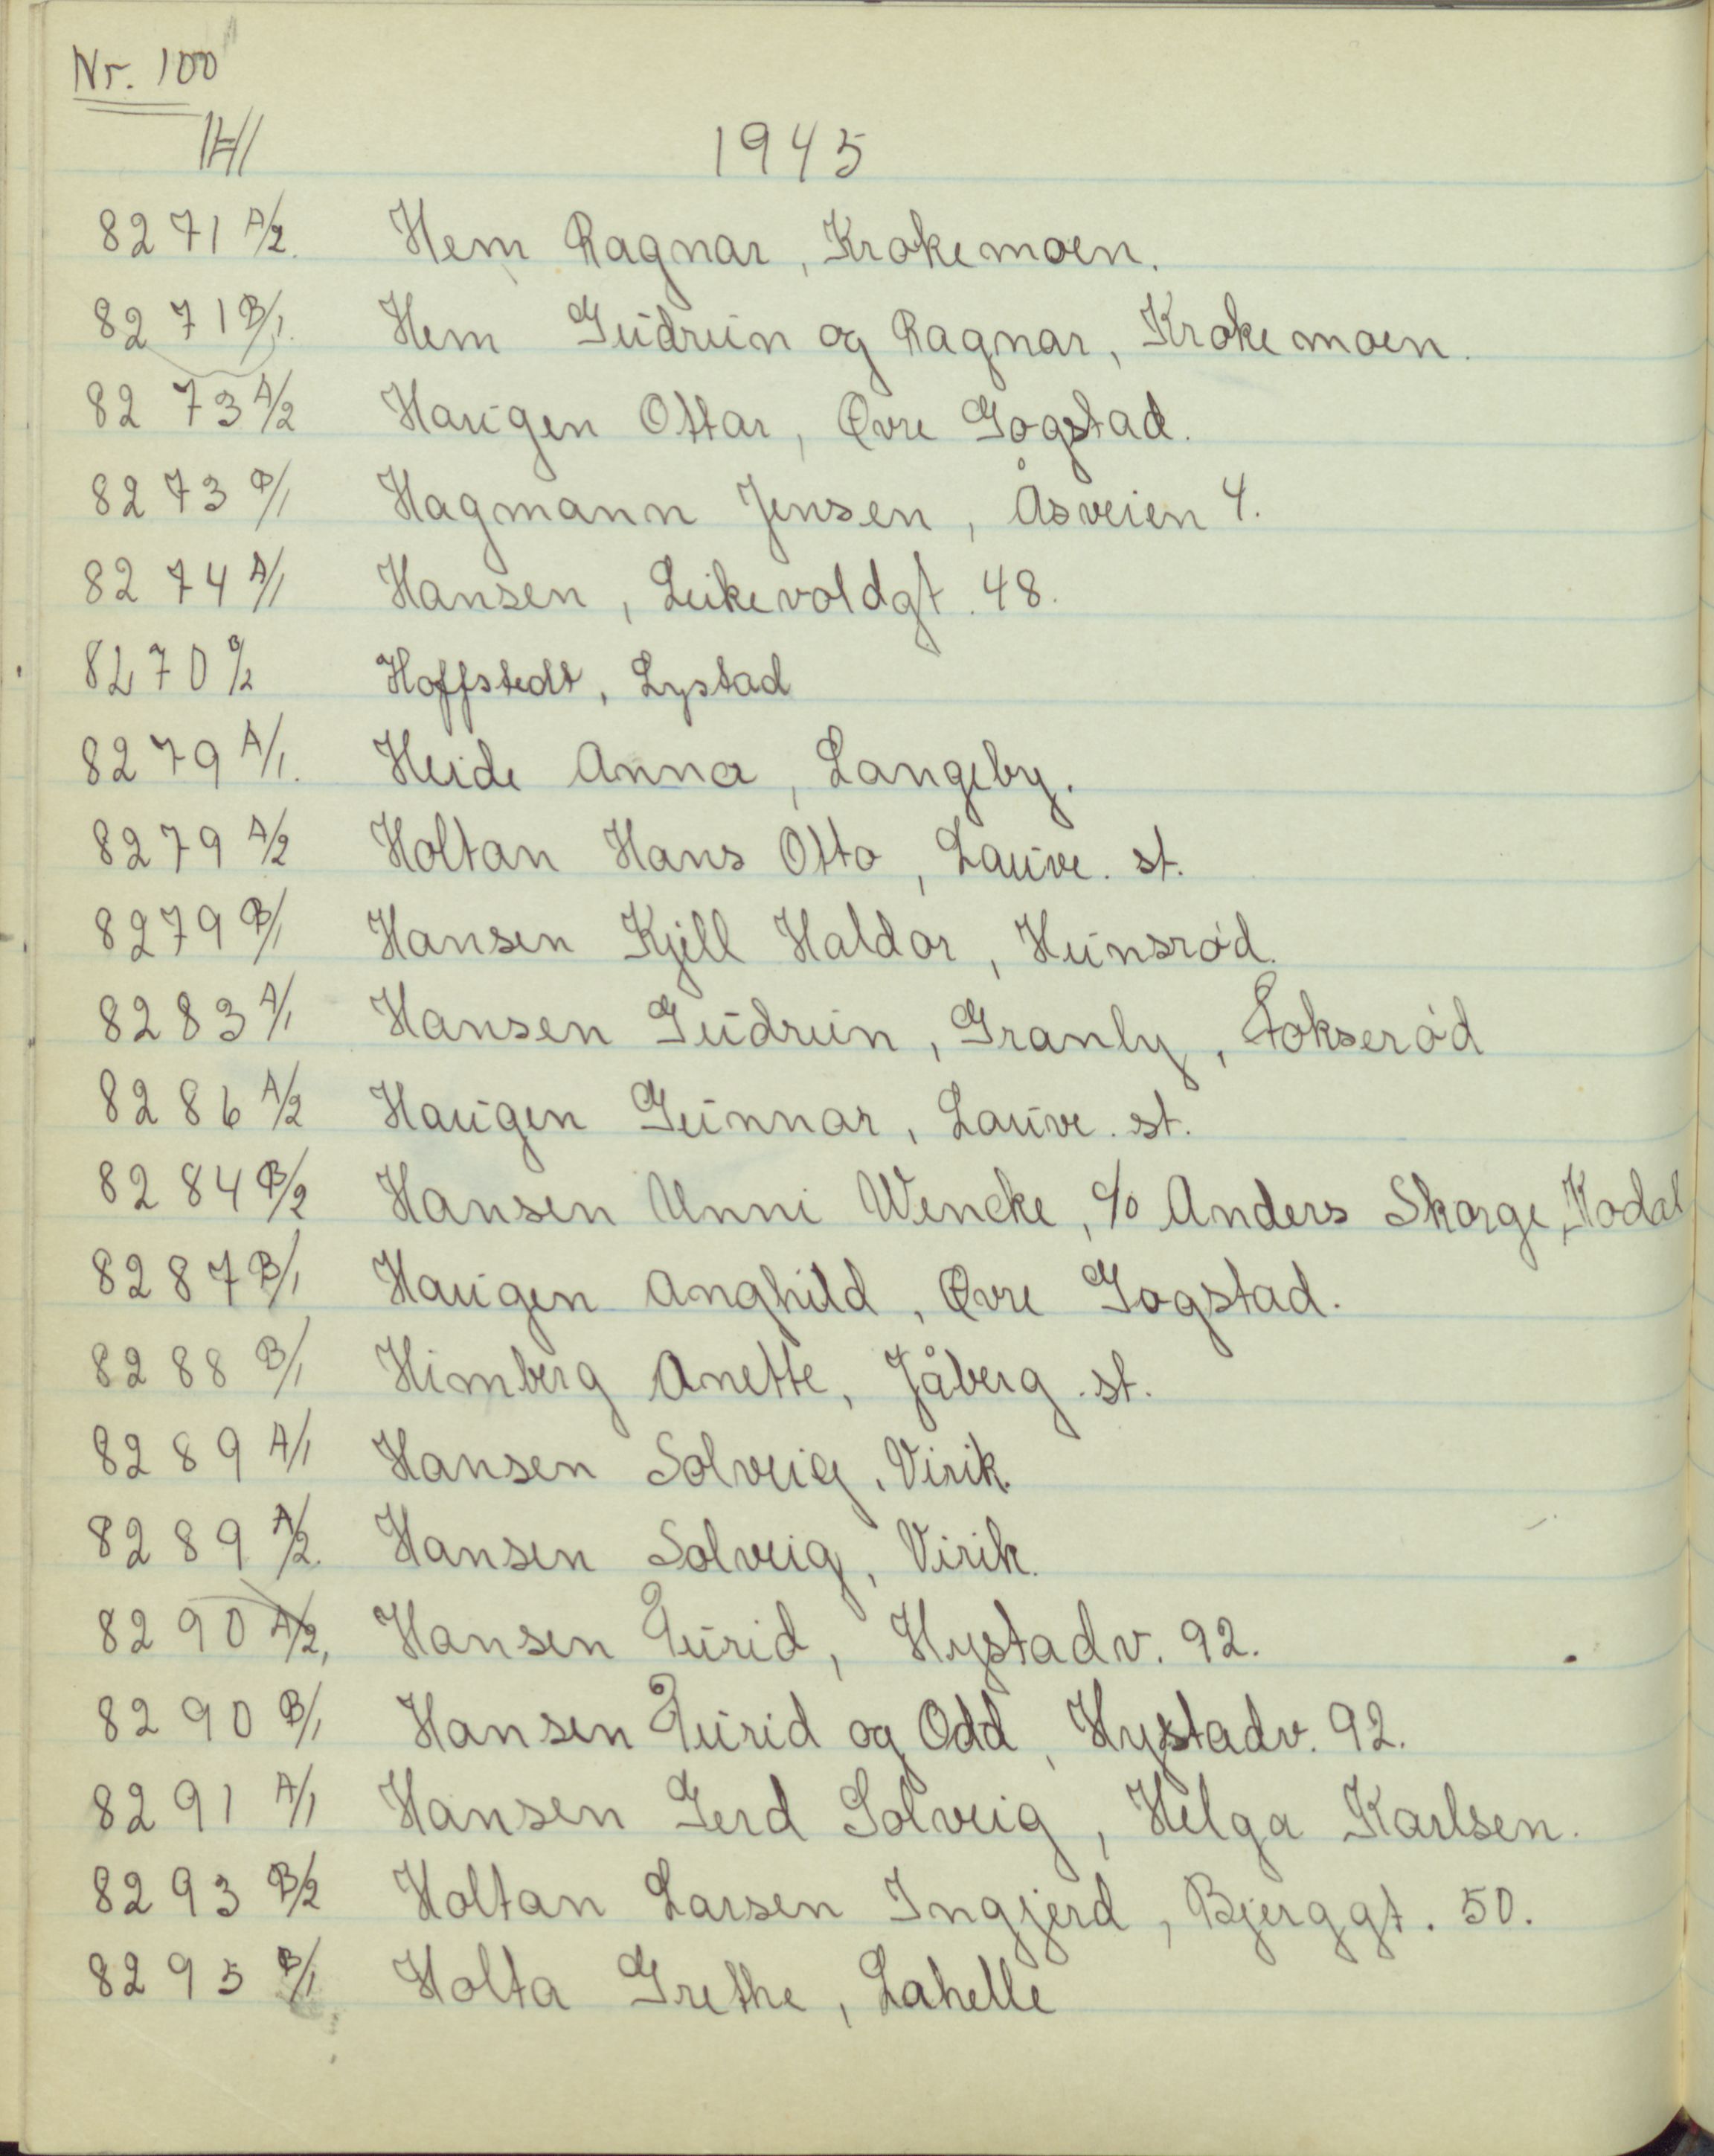 Nr. 100
H 1945
8271 A/2. Hem Ragnar, Krokemoen.
8271 B/1. Hem Gudrun og Ragnar, Krokemoen.
8273 A/2 Haugen Ottar, Øvre Gogstad.
8273 B/1 Hagmann Jensen, Åsveien 4.
8274 A/1 Hansen, Leikevoldgt. 48.
8270 B/2 Hoffstedt, Lystad
8279 A/1. Heide Anna, Langeby.
8279 A/2 Holtan Hans Otto, Lauve. st.
8279 B/1 Hansen Kjell Haldor, Hunsrød.
8283 A/1 Hansen Gudrun, Granly, Fokserød
8286 A/2 Haugen Gunnar, Lauve. st.
8284 B/2 Hansen Unni Wencke, c/o Anders Skorge, Kodal
8287 B/1 Haugen Anghild, Øvre Gogstad.
8288 B/1 Himberg Anette, Jåberg. st.
8289 A/1 Hansen Solveig, Virik.
8289 A/2. Hansen Solveig, Virik.
8290 A/2, Hansen Turid, Hystadv. 92.
8290 B/1 Hansen Turid og Odd, Hystadv. 92.
8291 A/1 Hansen Gerd Solveig, Helga Karlsen.
8293 B/2 Holtan Larsen Ingjerd, Bjerggt. 50.
8295 B/1 Holta Grethe, Lahelle